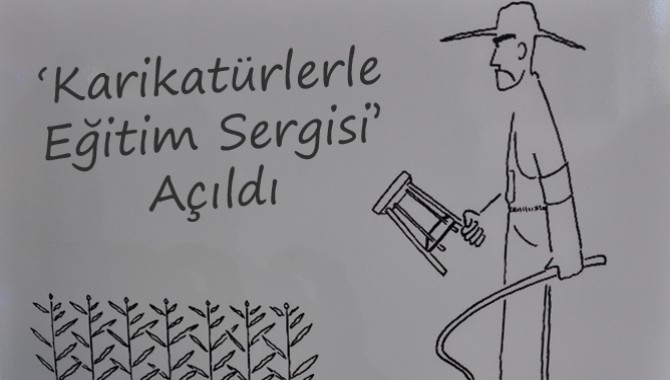 ‘Karikatürlerle
Eğitim Sergisi’
Açıldı